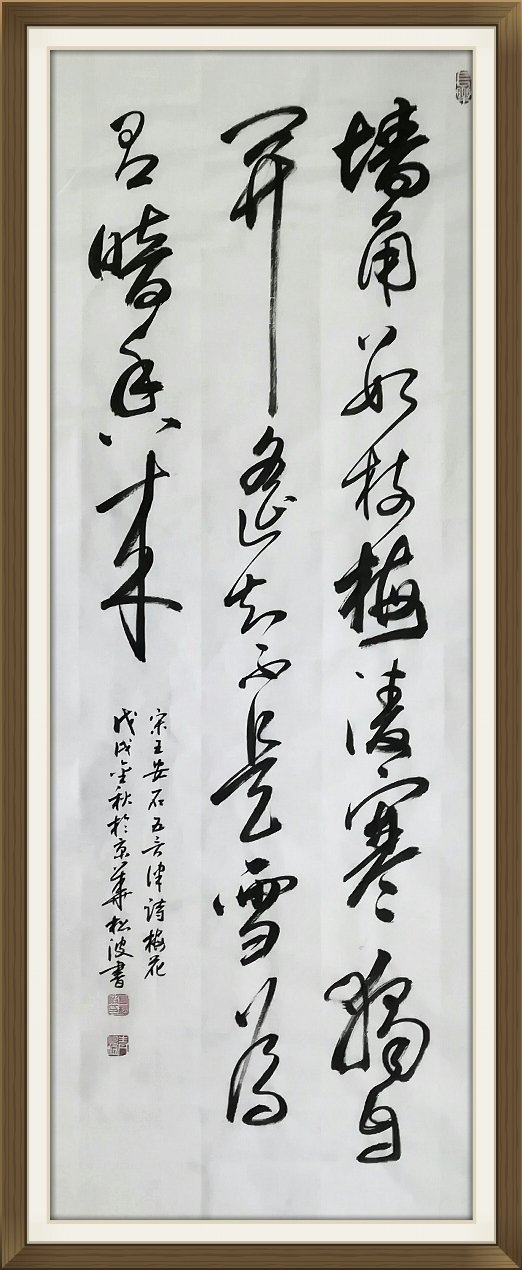 墙角数枝梅凌寒獨自
開遥知不是雪為
有暗香来
宋王安石五言律詩梅花
戊戌金秋於京華松波書